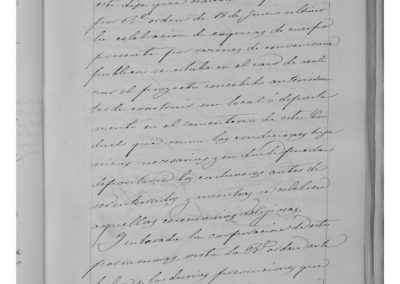 por R.l orden de 18 de Junio último
la celebracion de exequias de cuerpo
presente por razones de conveniencia
publica se estaba en el caso de reali-
zar el proyecto concebido
de construir un local ó departa-
mento en el cementerio de esta Ciu-
dad que reuna las condiciones higie-
nicas necesarias y en donde puedan
depositarse los cadaveres antes de
ser enterrados y mientras se celebran
aquellas ceremonias religiosas.
Enterada la corporacion de estos
pormenores, vista la R.l orden ante
las prevenciones que